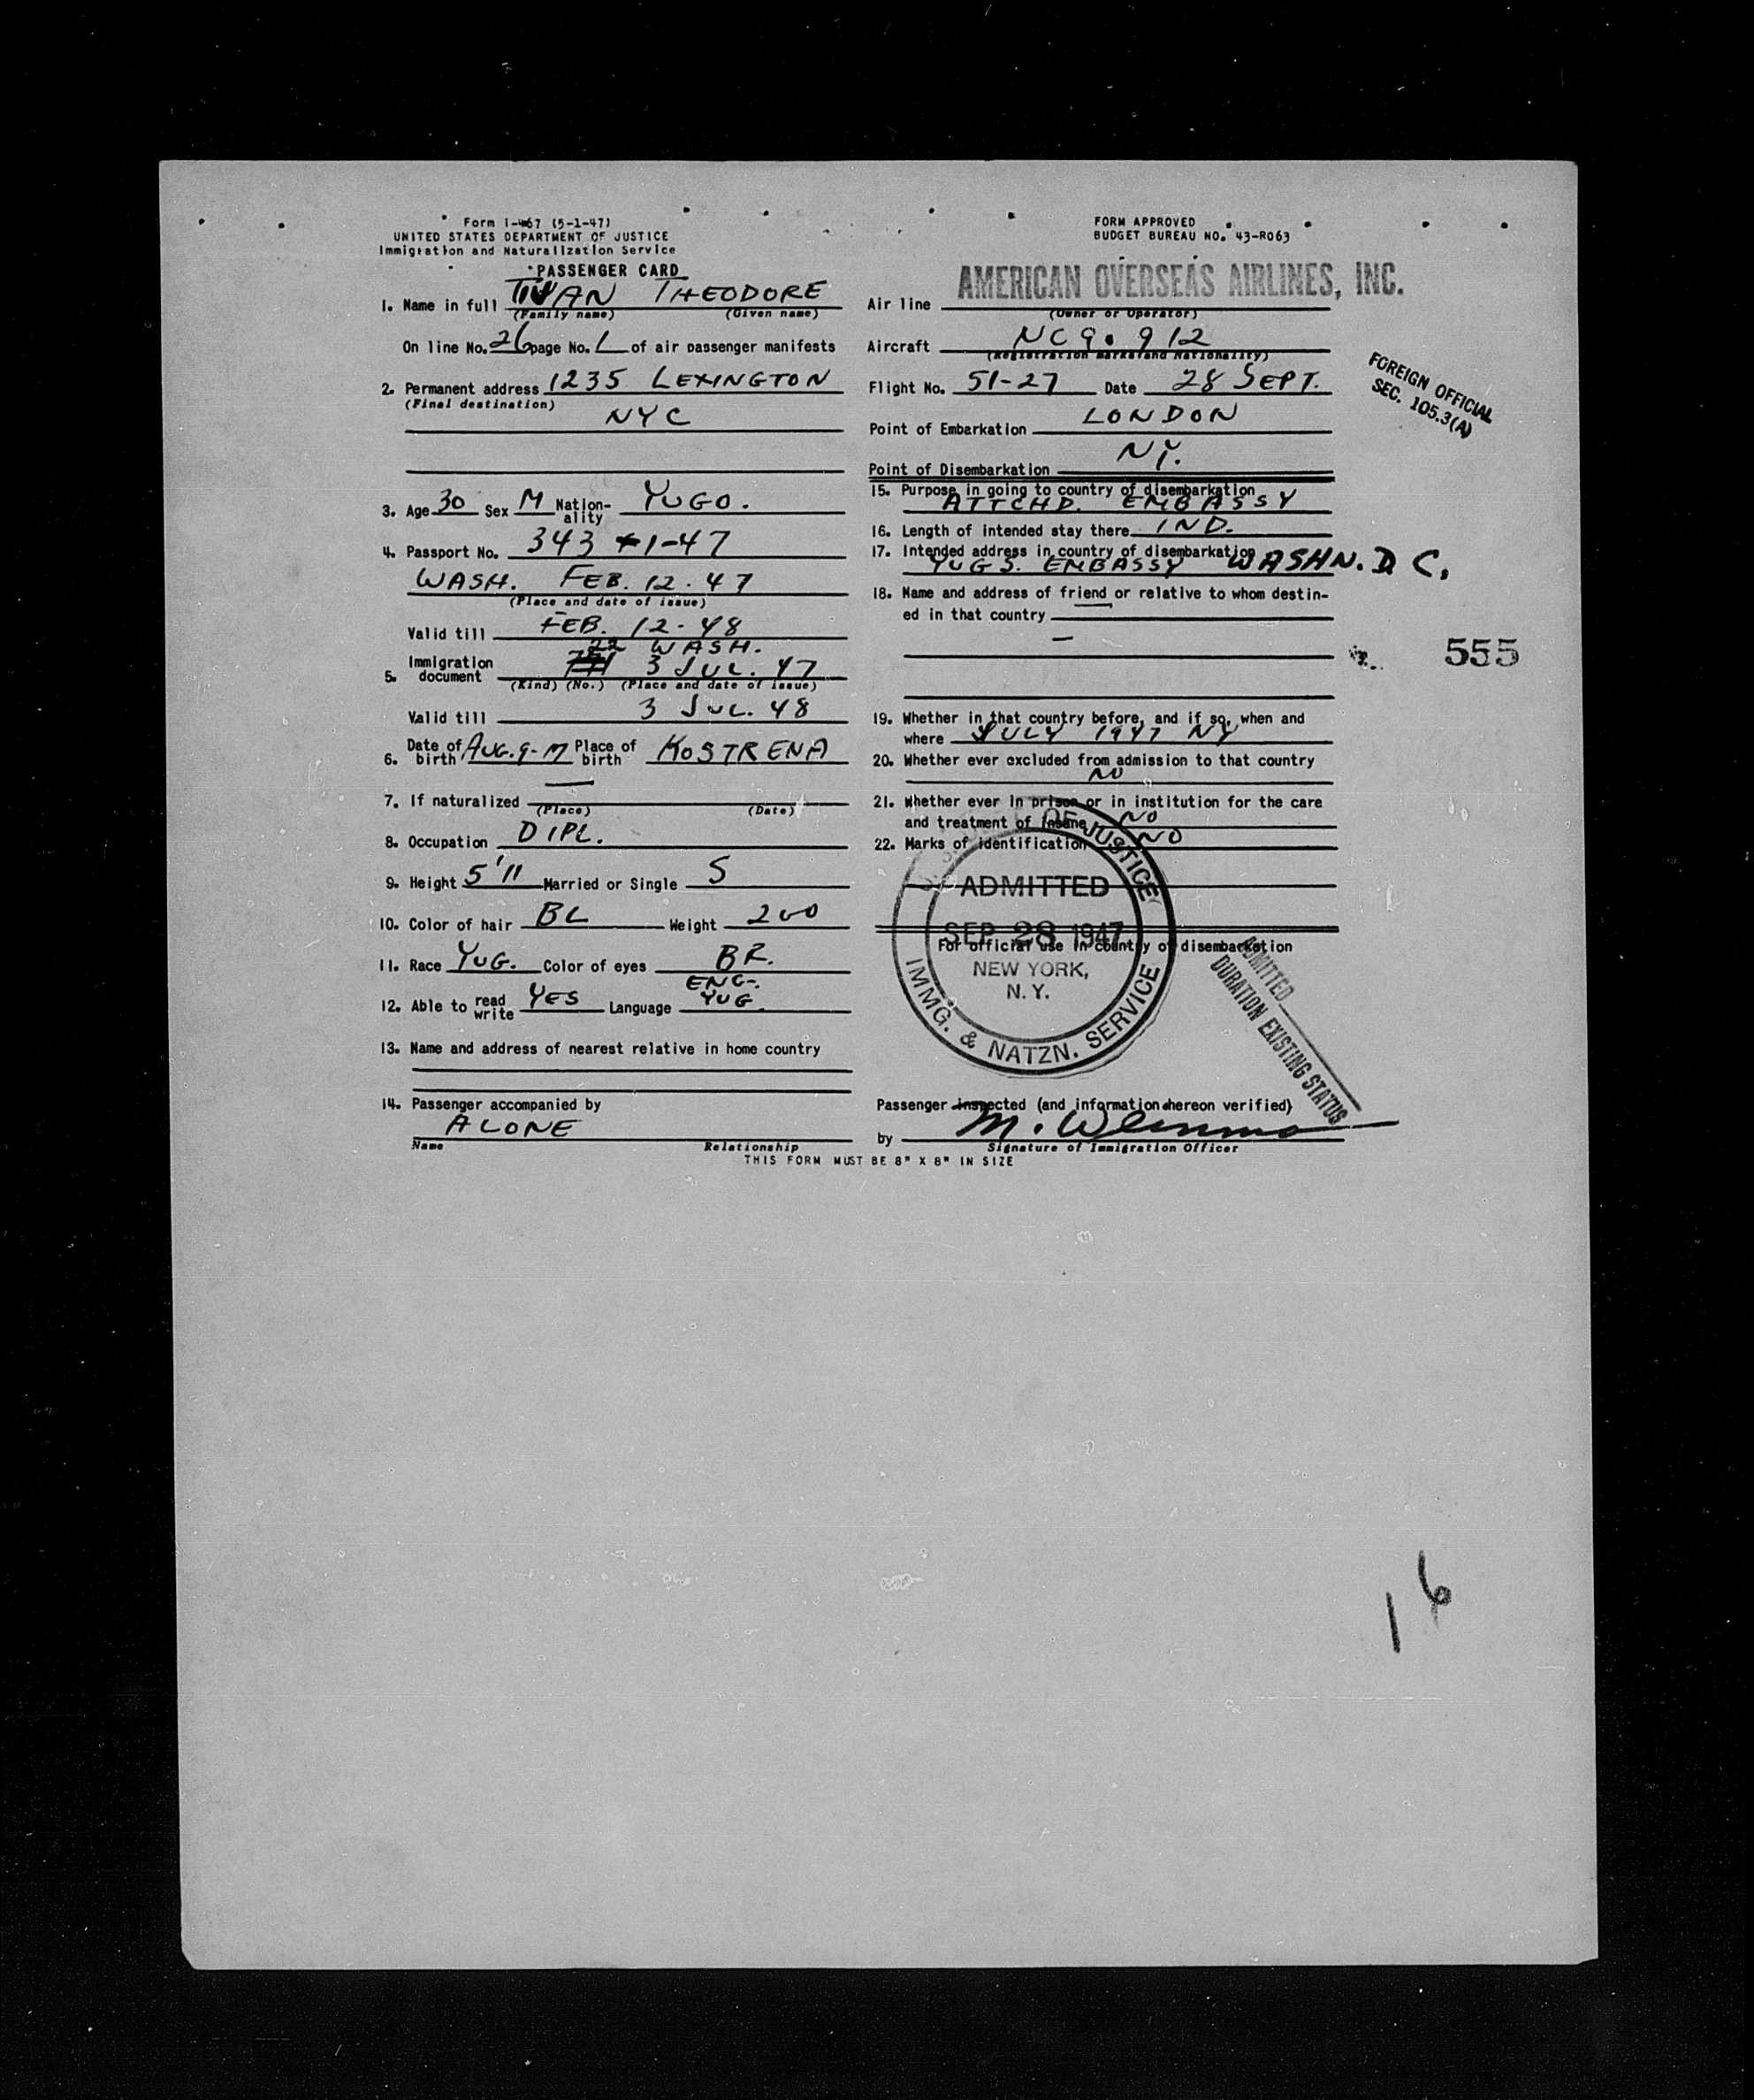 Form I-467 (5-1-47)
UNITED STATES DEPARTMENT OF JUSTICE
Immigration and Naturalization Service
PASSENGER CARD
1. Name in full TIJAN THEODORE
(Family name) (Given name)
On line No. 26 page No. 1 of air passenger manifests
2. Permanent address 1235 LEXINGTON
(Final destination)
NYC
3. Age 30 Sex M Nationality YUGO.
4. Passport No. 343 1-47
WASH. FEB. 12. 47
(Place and date of issue)
Valid till FEB. 12-48
22 WASH.
5. Immigration document 3 JUL. 47
(Kind) (No.) (Place and date of issue)
Valid till 3 JUL. 48
6. Date of birth AUG. 9-17 Place of birth KOSTRENA
7. If naturalized —
(Place) (Date)
8. Occupation DIPL.
9. Height 5'11 Married or Single S
10. Color of hair BL Weight 200
11. Race YUG. Color of eyes BR.
12. Able to read write YES Language ENG. YUG.
13. Name and address of nearest relative in home country
14. Passenger accompanied by
ALONE
Name Relationship
THIS FORM MUST BE 8" X 8" IN SIZE
FORM APPROVED
BUDGET BUREAU NO. 43-R063
AMERICAN OVERSEAS AIRLINES, INC.
Air line
(Owner or Operator)
Aircraft NC 9.912
(Registration marks and Nationality)
Flight No. 51-27 Date 28 SEPT.
Point of Embarkation LONDON
Point of Disembarkation NY.
FOREIGN OFFICIAL
SEC. 105.3(A)
15. Purpose in going to country of disembarkation
ATTCHD. EMBASSY
16. Length of intended stay there IND.
17. Intended address in country of disembarkation
YUGS. EMBASSY WASHN. D C.
18. Name and address of friend or relative to whom destin-
ed in that country —
—
555
19. Whether in that country before, and if so, when and
where JULY 1947 NY
20. Whether ever excluded from admission to that country
NO
21. Whether ever in prison or in institution for the care
and treatment of insane NO
22. Marks of identification NO
DEPT. OF JUSTICE
ADMITTED
SEP 28 1947
NEW YORK,
N. Y.
IMMG. & NATZN. SERVICE
For official use in country of disembarkation
ADMITTED
DURATION EXISTING STATUS
Passenger inspected (and information hereon verified)
by
Signature of Immigration Officer
16